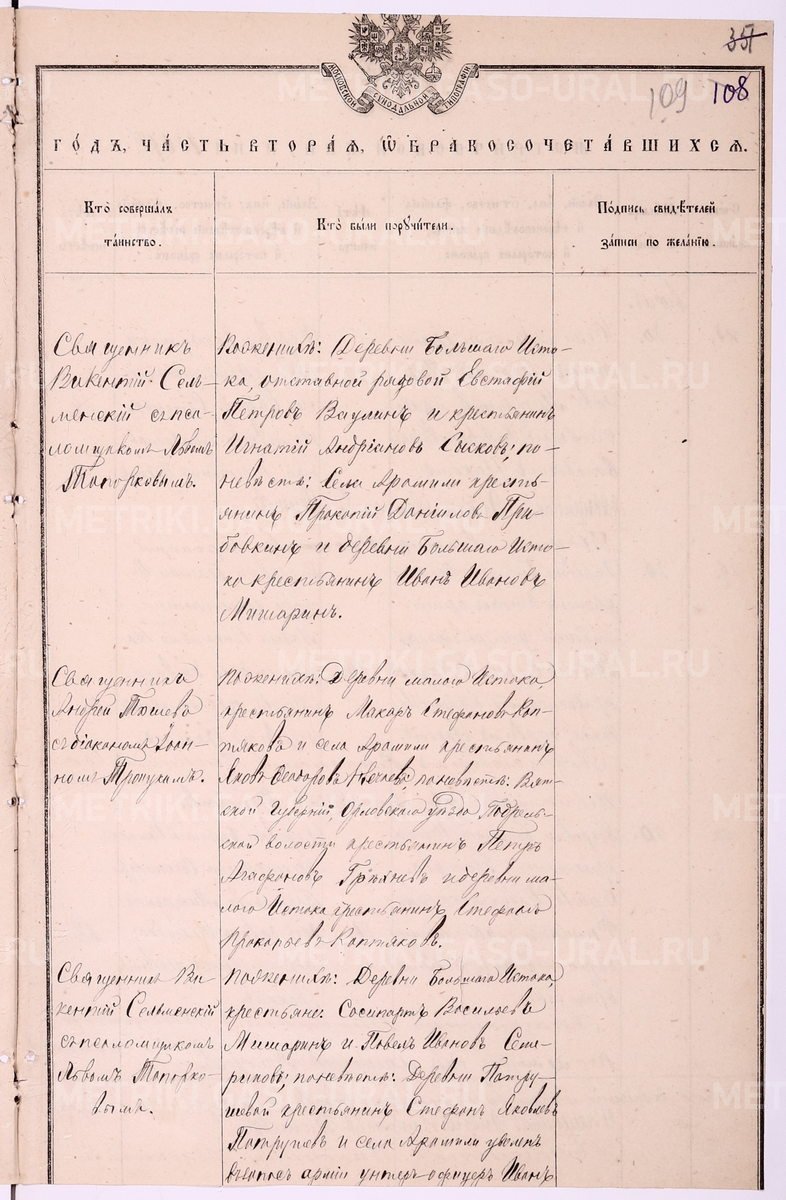 35
109 108
МОСКОВСКОЙ СѴНОДАЛЬНОЙ ТИПОГРАФІИ
ГО́ДЪ, ЧА́СТЬ ВТОРА́Я, Ѿ БРАКОСОЧЕТА́ВШИХСЯ.
Кто̀ соверша́лъ
та́инство.
Кто̀ бы́ли порꙋчи́тели.
По́дпись свидѣ́телей
за́писи по жела́нїю.
Священникъ
Викентій Сель-
менскій съ пса-
ломщикомъ Львомъ
Топорковымъ.
По женихѣ: Деревни Большаго Исто-
ка, отставной рядовой Евстафій
Петровъ Ваулинъ и крестьянинъ
Игнатій Андріановъ Сысковъ; по
невѣстѣ: Села Арамили кресть-
янинъ Прокопій Даніиловъ Гри-
бовкинъ и деревни Большаго Исто-
ка крестьянинъ Иванъ Ивановъ
Мишаринъ.
Священникъ
Андрей
съ діакономъ Іоан-
номъ
По женихѣ: Деревни малаго Истока,
крестьянинъ Макаръ Стефановъ Коп-
тяковъ и села Арамили крестьянинъ
Яковъ Ѳеодоровъ по невѣстѣ: Вят-
ской губерніи, Орловскаго уѣзда
волости крестьянинъ Петръ
Агафоновъ и деревни ма-
лаго Истока крестьянинъ Стефанъ
Прокопьевъ Коптяковъ.
Священникъ Ви-
кентій Сельменскій
съ псаломщикомъ
Львомъ Топорко-
вымъ.
По женихѣ: Деревни Большаго Истока,
крестьяне: Сосипатръ Васильевъ
Мишаринъ и Павелъ Ивановъ Ста-
риковъ; по невѣстѣ: Деревни Патру-
шевой крестьянинъ Стефанъ Яковлевъ
Патрушевъ и села Арамили уволен.
въ запасъ арміи унтеръ офицеръ Иванъ
METRIKI.GASO-URAL.RU